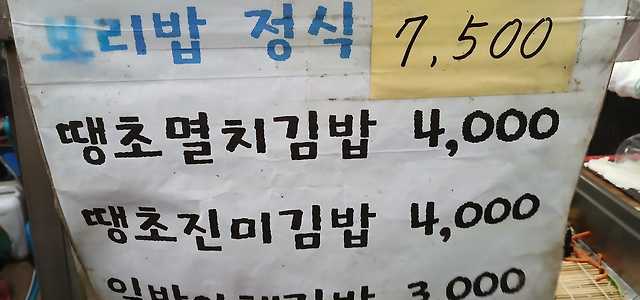 보리밥 정식 7,500
땡초멸치김밥 4,000
땡초진미김밥 4,000
3,000